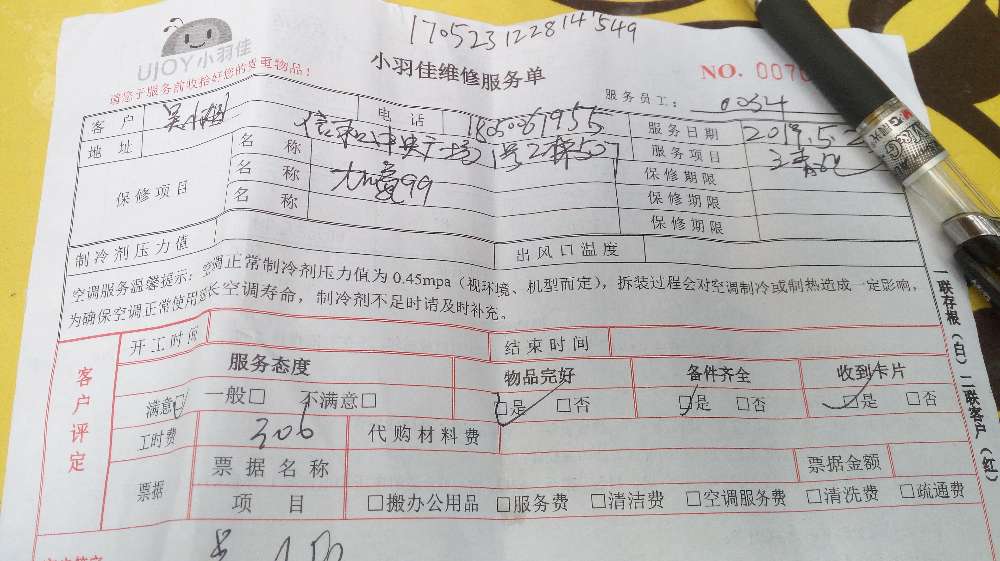 170523122814549
UJOY小羽佳
小羽佳维修服务单
NO. 0070
请您于服务前收拾好您的贵重物品!
服务员工:
客户 吴 电话 服务日期
地址 信和中央广场1号2梯507 服务项目
保修项目 名称 保修期限
名称 保修期限
名称 保修期限
制冷剂压力值 出风口温度
空调服务温馨提示:空调正常制冷剂压力值为0.45mpa(视环境、机型而定),拆装过程会对空调制冷或制热造成一定影响,
为确保空调正常使用延长空调寿命,制冷剂不足时请及时补充。
客户评定
开工时间 结束时间
服务态度 物品完好 备件齐全 收到卡片
满意□ 一般□ 不满意□ □是 □否 □是 □否 □是 □否
工时费 306 代购材料费
票据 票据名称 票据金额
项目 □搬办公用品 □服务费 □清洁费 □空调服务费 □清洗费 □疏通费
一联存根(白)二联客户(红)